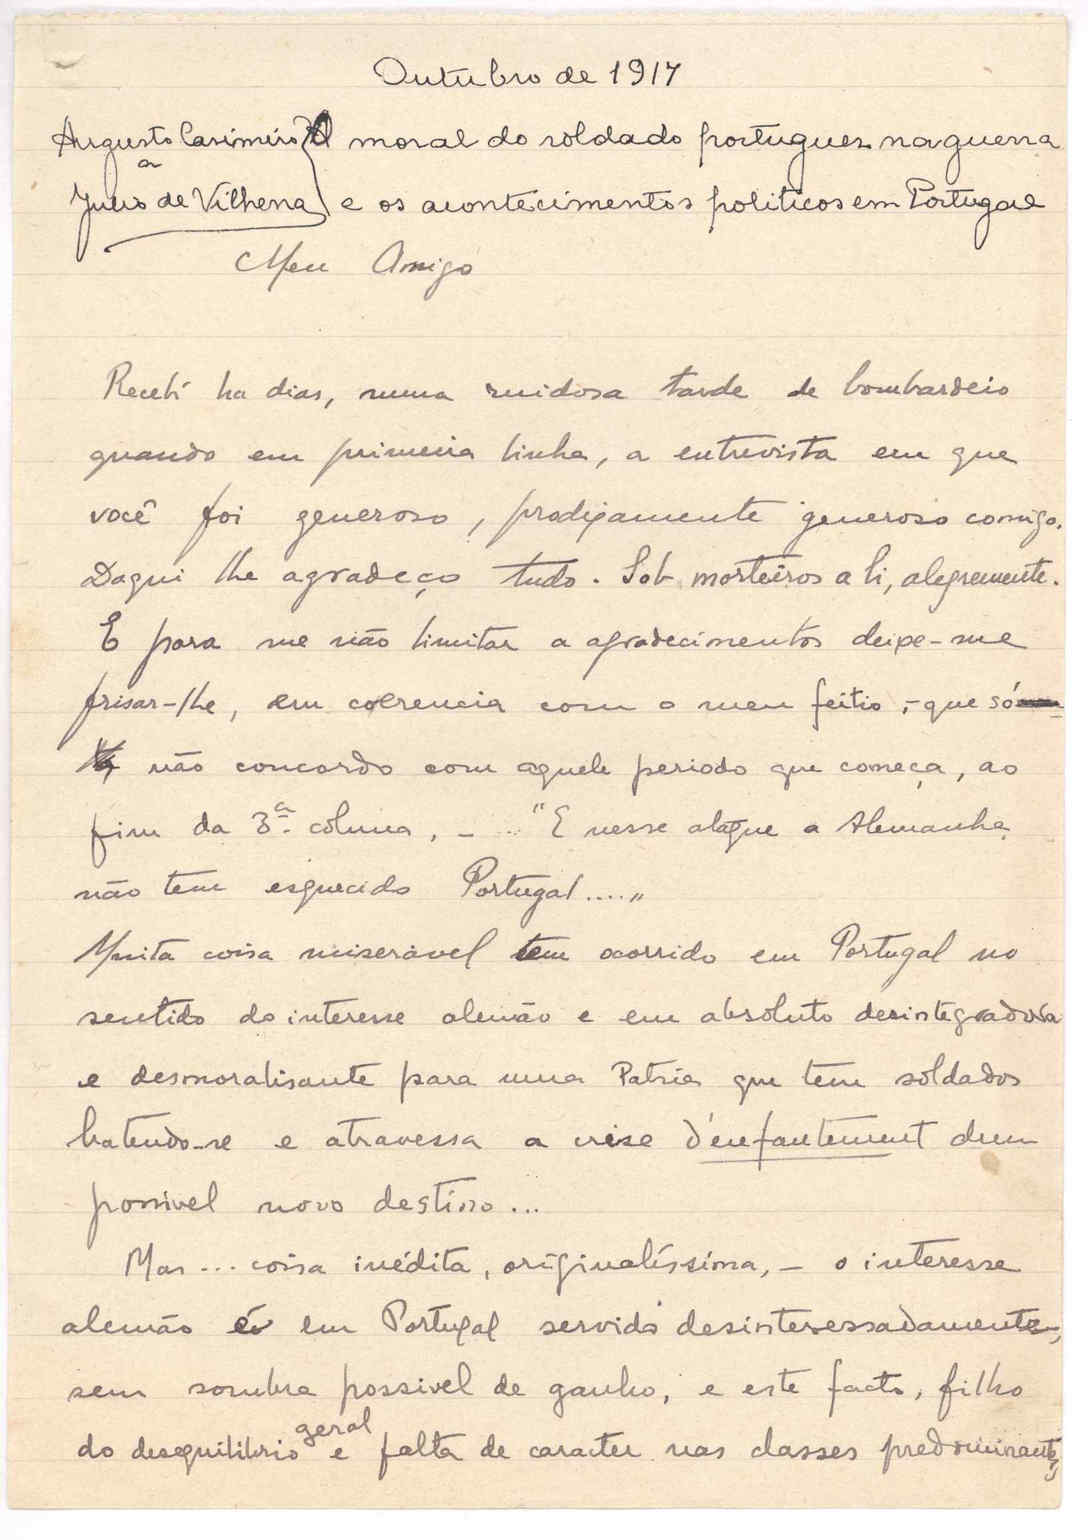 Outubro de 1917
Augusto Casimiro } A moral do soldado portuguez na guerra
a
Julio de Vilhena } e os acontecimentos politicos em Portugal
Meu Amigo
Recebi ha dias, numa ruidosa tarde de bombardeio
quando em primeira linha, a entrevista em que
você foi generoso, prodigamente generoso comigo.
Daqui lhe agradeço tudo. Sob morteiros a li, alegremente.
E para me não limitar a agradecimentos deixe-me
frisar-lhe, em coerencia com o meu feitio, - que só
não concordo com aquele periodo que começa, ao
fim da 3.ª coluna, - "E nesse ataque a Alemanha
não tem esquecido Portugal...."
Muita coisa miserável tem ocorrido em Portugal no
sentido do interesse alemão e em absoluto desintegradora
e desmoralisante para uma Patria que tem soldados
batendo-se e atravessa a crise d'enfantement dum
possivel novo destino...
Mas... coisa inédita, originalíssima, - o interesse
alemão é em Portugal servido desinteressadamente,
sem sombra possivel de ganho, e este facto, filho
do desequilibrio geral e falta de caracter nas classes predominantes,